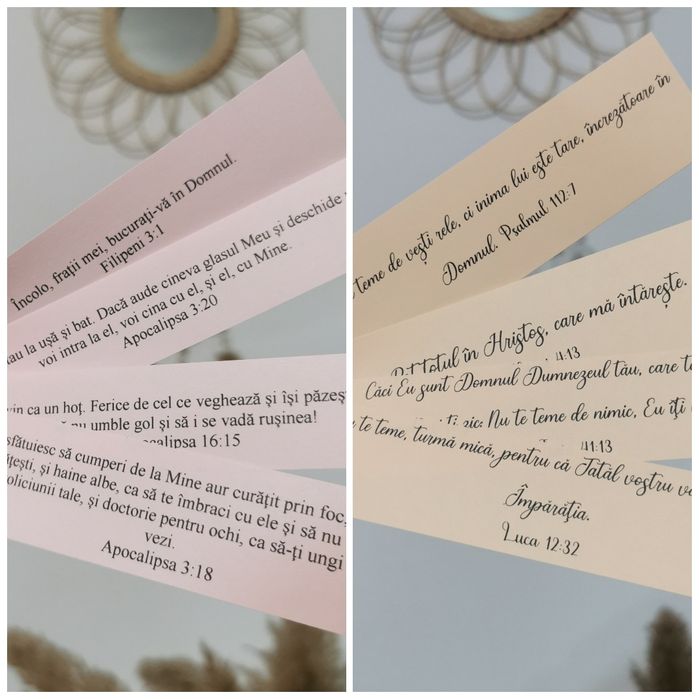 Încolo, frații mei, bucurați-vă în Domnul.
Filipeni 3:1
la ușă și bat. Dacă aude cineva glasul Meu și deschide
voi intra la el, voi cina cu el, și el, cu Mine.
Apocalipsa 3:20
ca un hoț. Ferice de cel ce veghează și își
umble gol și să i se vadă rușinea!
16:15
să cumperi de la Mine aur curățit prin foc,
și haine albe, ca să te îmbraci cu ele și să nu
tale, și doctorie pentru ochi, ca să-ți ungi
vezi.
Apocalipsa 3:18
teme de vești rele, ci inima lui este tare, încrezătoare în
Domnul. Psalmul 112:7
totul în Hristos, care mă întărește.
4:13
Căci Eu sunt Domnul Dumnezeul tău, care
Nu te teme de nimic, Eu îți
41:13
te teme, turmă mică, pentru că Tatăl vostru
Împărăția.
Luca 12:32